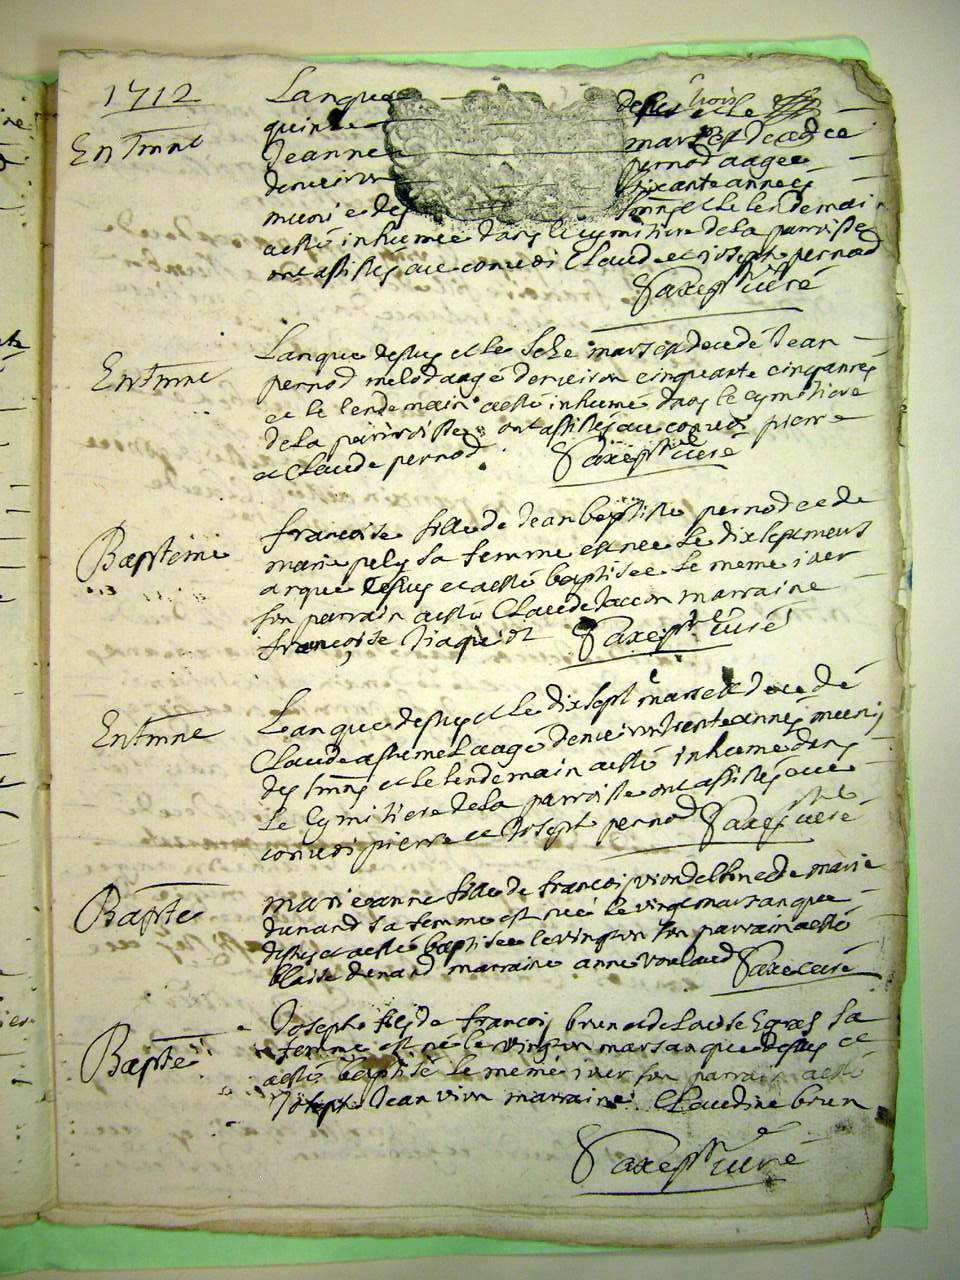 1712
Enterrme
L'an que dessus et le trois
quinze mars est decedée
Jeanne pernod aagee
denviron soixante années
munie des smns et le lendemain
a esté inhumée dans le cymitiere de la parroisse
ont assistés au convoi Claude et joseph pernod
Saxe ptre curé
Enterrme
L'an que dessus et le mars est decedé Jean
pernod melod aagé denviron cinquante cinq années
et le lendemain a esté inhumé dans le cymitiere
de la parroisse ont assistés au convoi pierre
et Claude pernod. Saxe ptre curé
Bapteme
francoise fille de Jean baptiste pernod et de
marie pely sa femme est née le dix sept mars
an que dessus et a esté baptisée le meme jour
son parrain a esté Claude Jaccon marraine
francoise Saxe ptre curé
Enterrme
L'an que dessus et le dix sept mars est decedé
Claude aagé denviron trente années muni
des smns et le lendemain a esté inhumé dans
le Cymitiere de la parroisse ont assistés au
convoi pierre et Joseph pernod Saxe ptre curé
Bapte
marie anne fille de francois et de marie
dunand sa femme est née le vingt mars an que
dessus et a esté baptisée le vingt un son parrain a esté
blaise dunand marraine anne Saxe curé
Bapte
Joseph fils de francois brun et de sa
femme est né le vingt un mars an que dessus et
a esté baptisé le meme jour son parrain a esté
Joseph Jean vion marraine Claudine brun
Saxe ptre curé